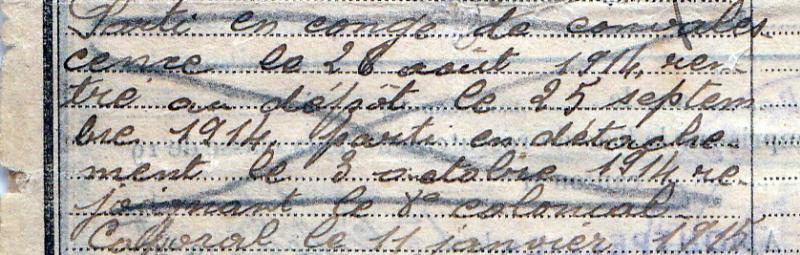 Parti en congé de convales
cence le 28 août 1914, ren-
tré au dépôt le 25 septem
bre 1914, parti en détache-
ment le 3 octobre 1914 re-
joignant le 8e colonial
Caporal le 11 janvier 1915